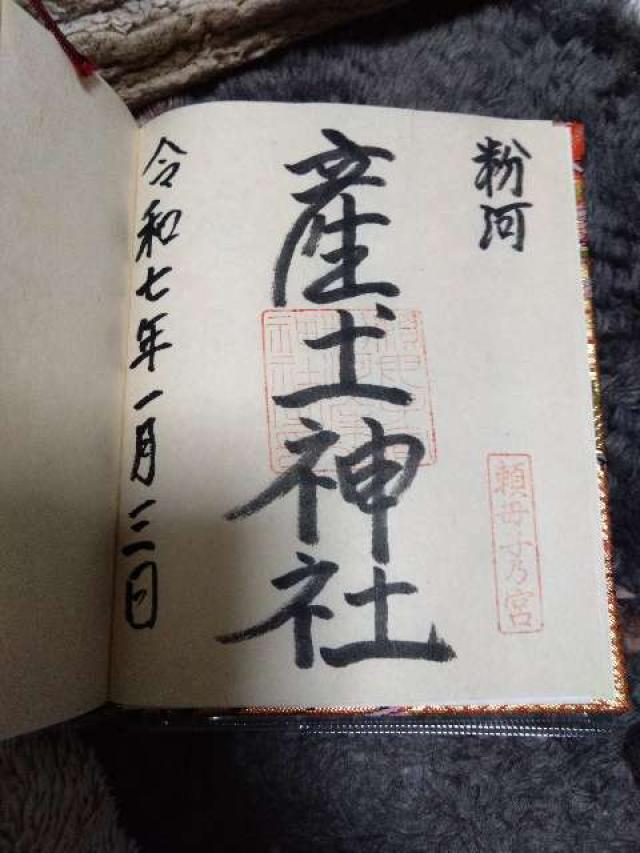 粉河
産土神社
頼母子乃宮
令和七年一月三日